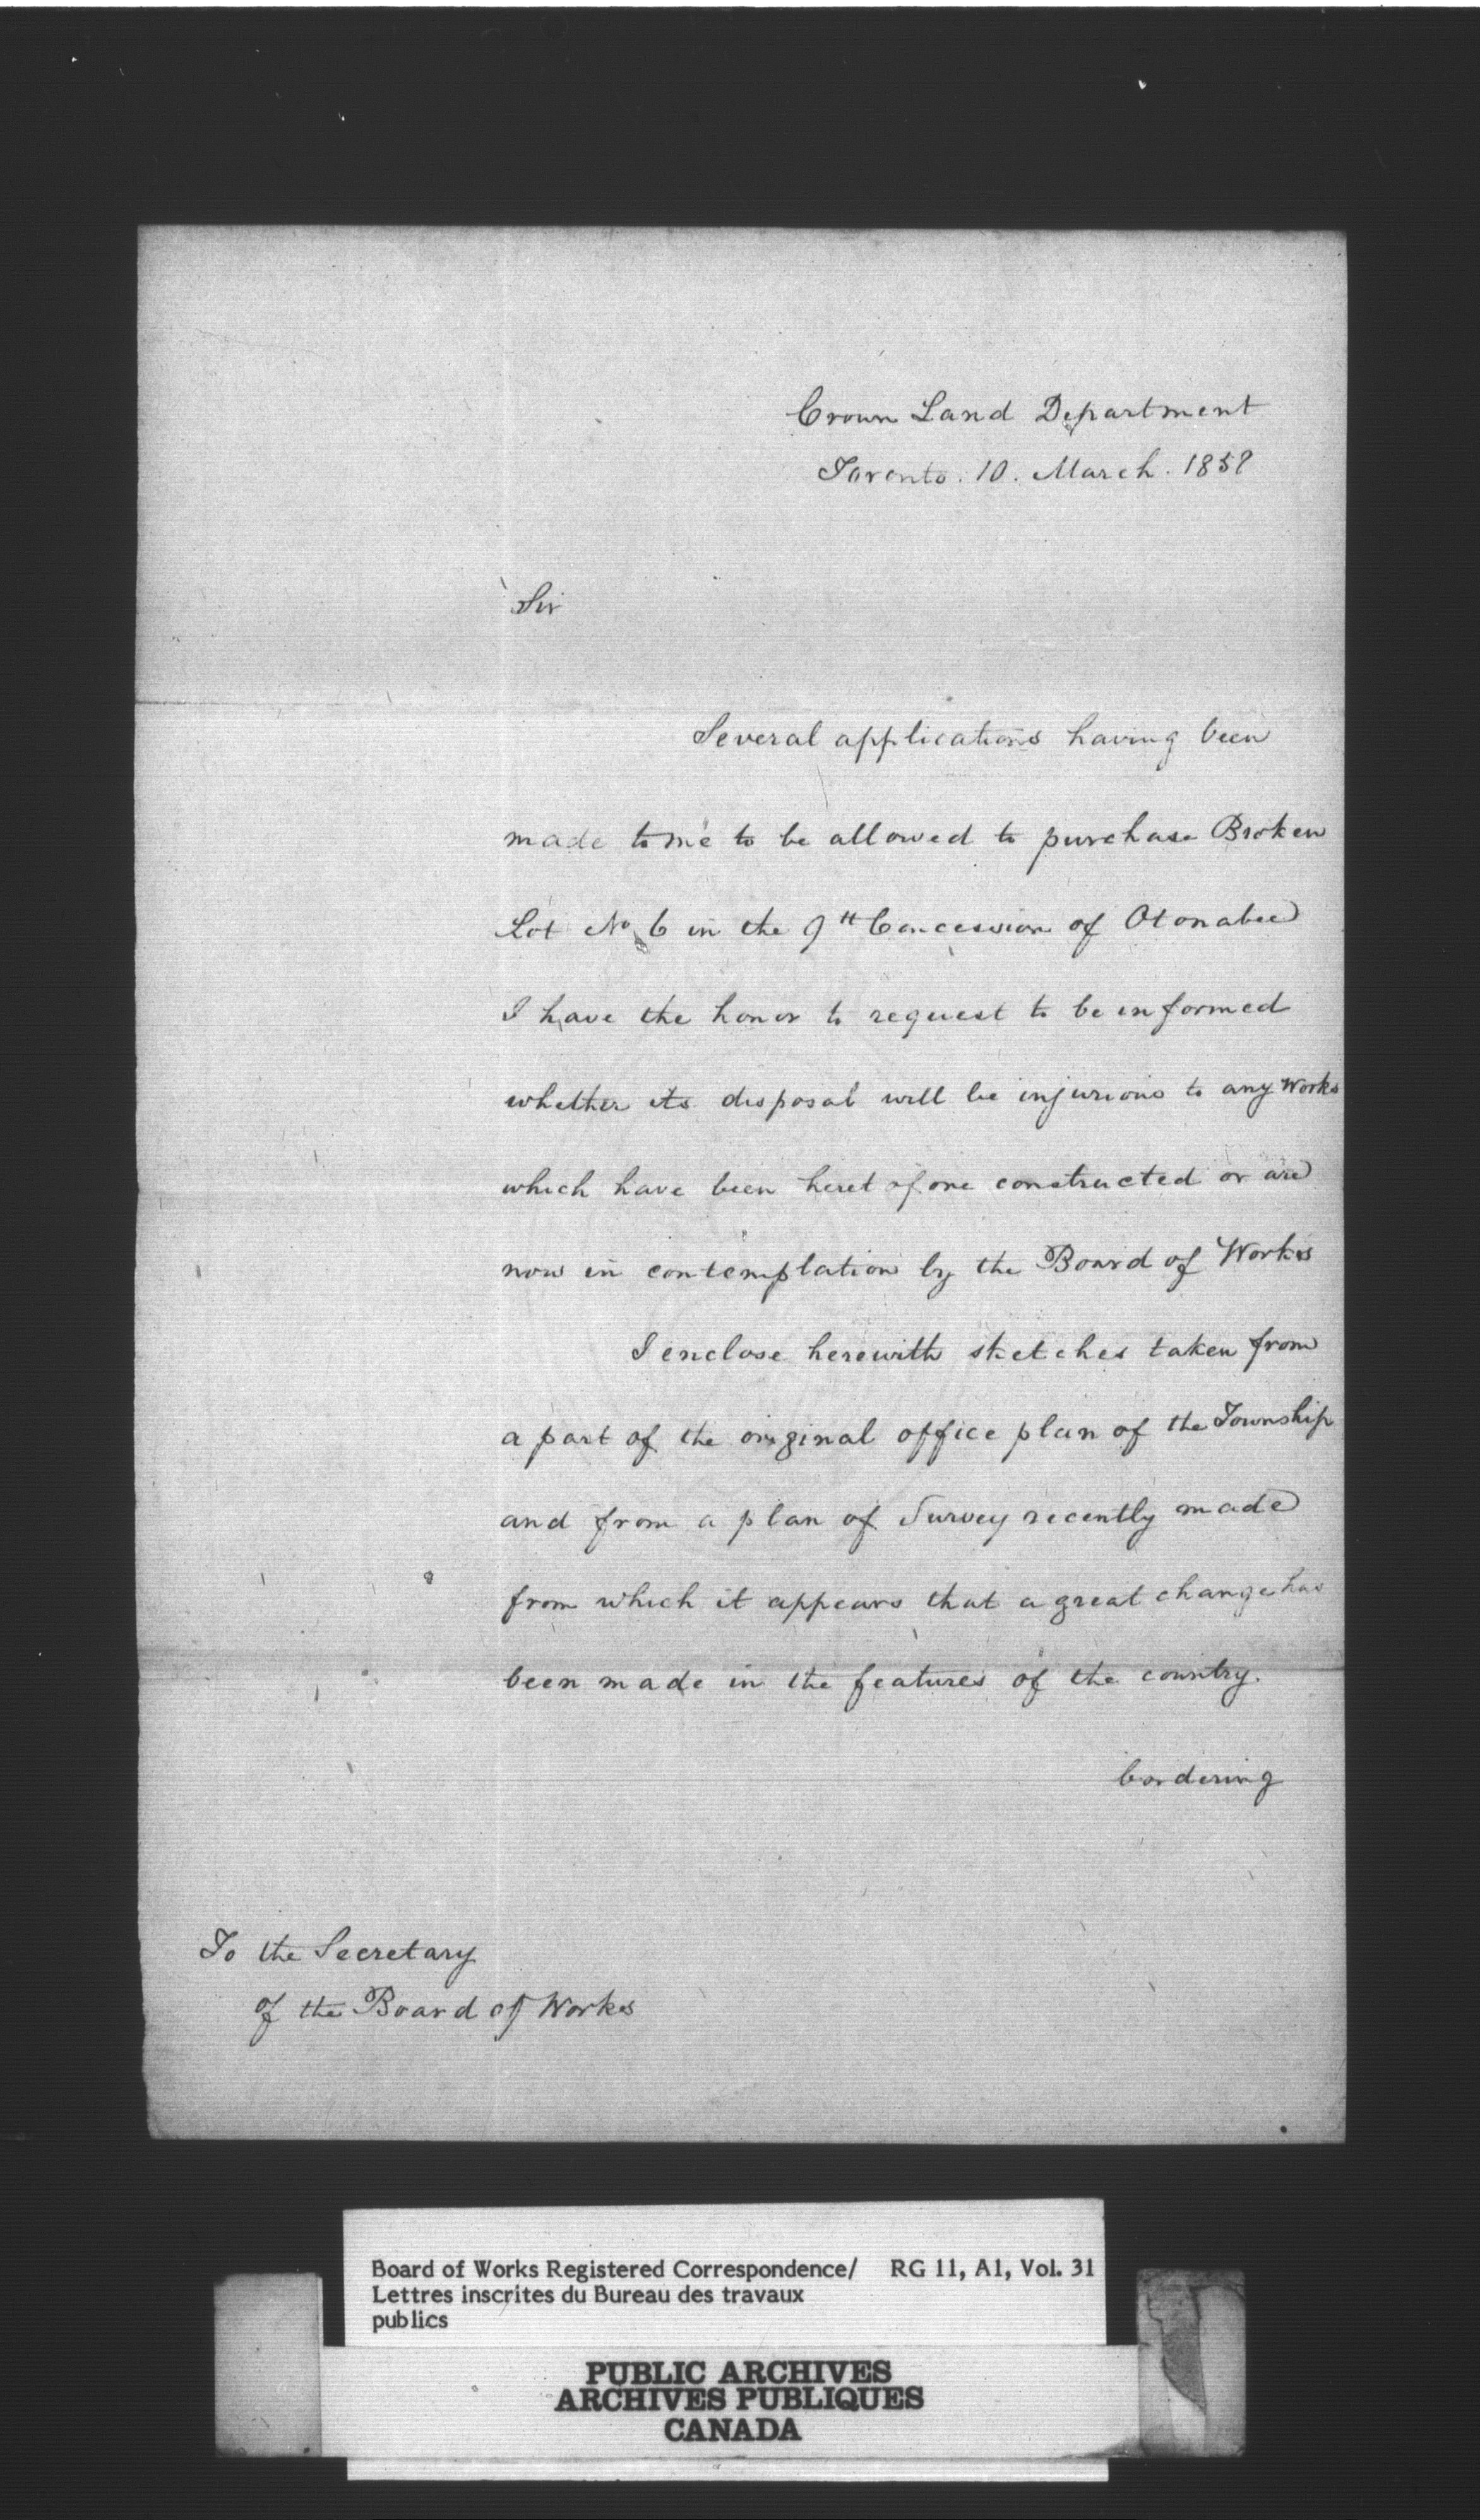 Crown Land Department
Toronto. 10. March. 1858
Sir
Several applications having been
made to me to be allowed to purchase Broken
Lot No 6 in the 9th Concession of Otonabee
I have the honor to request to be informed
whether its disposal will be injurious to any Works
which have been heretofore constructed or are
now in contemplation by the Board of Works
I enclose herewith sketches taken from
a part of the original office plan of the Township
and from a plan of Survey recently made
from which it appears that a great change has
been made in the features of the country.
bordering
To the Secretary
of the Board of Works
Board of Works Registered Correspondence/ RG 11, A1, Vol. 31
Lettres inscrites du Bureau des travaux
publics
PUBLIC ARCHIVES
ARCHIVES PUBLIQUES
CANADA